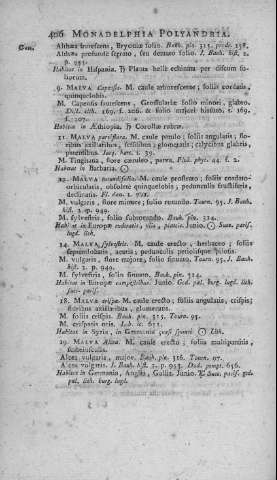 406 MONADELPHIA POLYANDRIA.
Althæa frutescens, Bryoniæ folio. Bauh. pin. 315. prodr. 158.
Althæa profunde serrato, seu dentato folio. J. Bauh. hist. 2.
p. 953.
Habitat in Hispania. Planta helle echinata per discum foliorum.
9. MALVA Capensis. M. caule arborescente; foliis cordatis,
quinquelobis.
M. Capensis frutescens, Grossulariæ folio minori, glabro.
Habitat in Æthiopia. Corollæ rubræ.
11. MALVA parviflora. M. caule patulo; foliis angulatis; floribus axillaribus, sessilibus; glomeratis; calycibus glabris,
patentibus. Jacq. hort. t. 39.
M. Tingitana, flore cæruleo, parvo. Pluk. phyt. 44. f. 2.
Habitat in Barbaria.
M. caule prostrato; foliis cordato-orbiculatis, obsolete quinquelobis; pedunculis fructiferis,
declinatis.
M. vulgaris, flore minore; folio rotundo. Tourn. 95. J. Bauh.
hist. 2. p. 949.
M. sylvestris, folio subrotundo. Bauh. pin. 314.
Habitat in Europæ ruderatis, viis, plateis. Junio.
lugd. lith.
14. MALVA sylvestris. M. caule erecto, herbaceo; foliis
septemlobatis, acutis; pedunculis petiolisque pilosis.
M. vulgaris, flore majore, folio sinuato. Tourn. 95. J. Bauh.
hist. 2. p. 949.
M. sylvestris, folio sinuato. Bauh. pin. 314.
Habitat in Europæ campestribus. Junio. Ged. pal. burg. lugd. lith.
18. MALVA crispa. M. caule erecto; foliis angulatis, crispis;
floribus axillaribus, glomeratis.
M. foliis crispis. Bauh. pin. 315. Tourn. 95.
M. crispata
Habitat in Syria, in Germania
19. MALVA Alcea. M. caule erecto; foliis multipartitis,
scabriusculis.
Alcea vulgaris, major. Bauh. pin. 316. Tourn. 97.
Alcea vulgaris. J. Bauh. hist. 2. p. 953. Dod. pempt. 656.
Habitat in Germania, Anglia, Gallia. Junio.
pal. lith. burg. lugd.